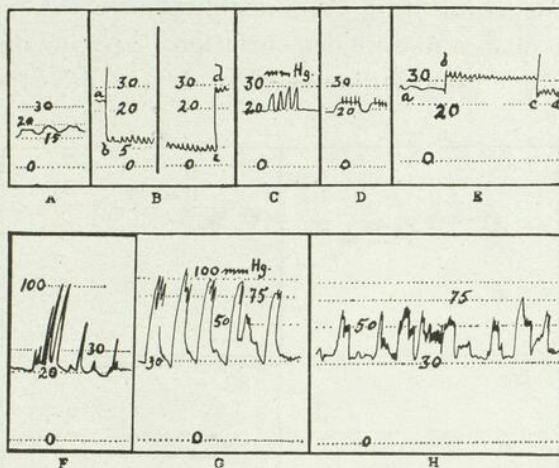 30
20
15
0
A
a
30
20
b 5
0
d
30
20
c
0
B
mm Hg.
30
20
0
C
30
20
0
D
b
30
a
20
c
0
E
100
30
20
0
F
100 mm Hg.
75
50
30
0
G
75
50
30
0
H